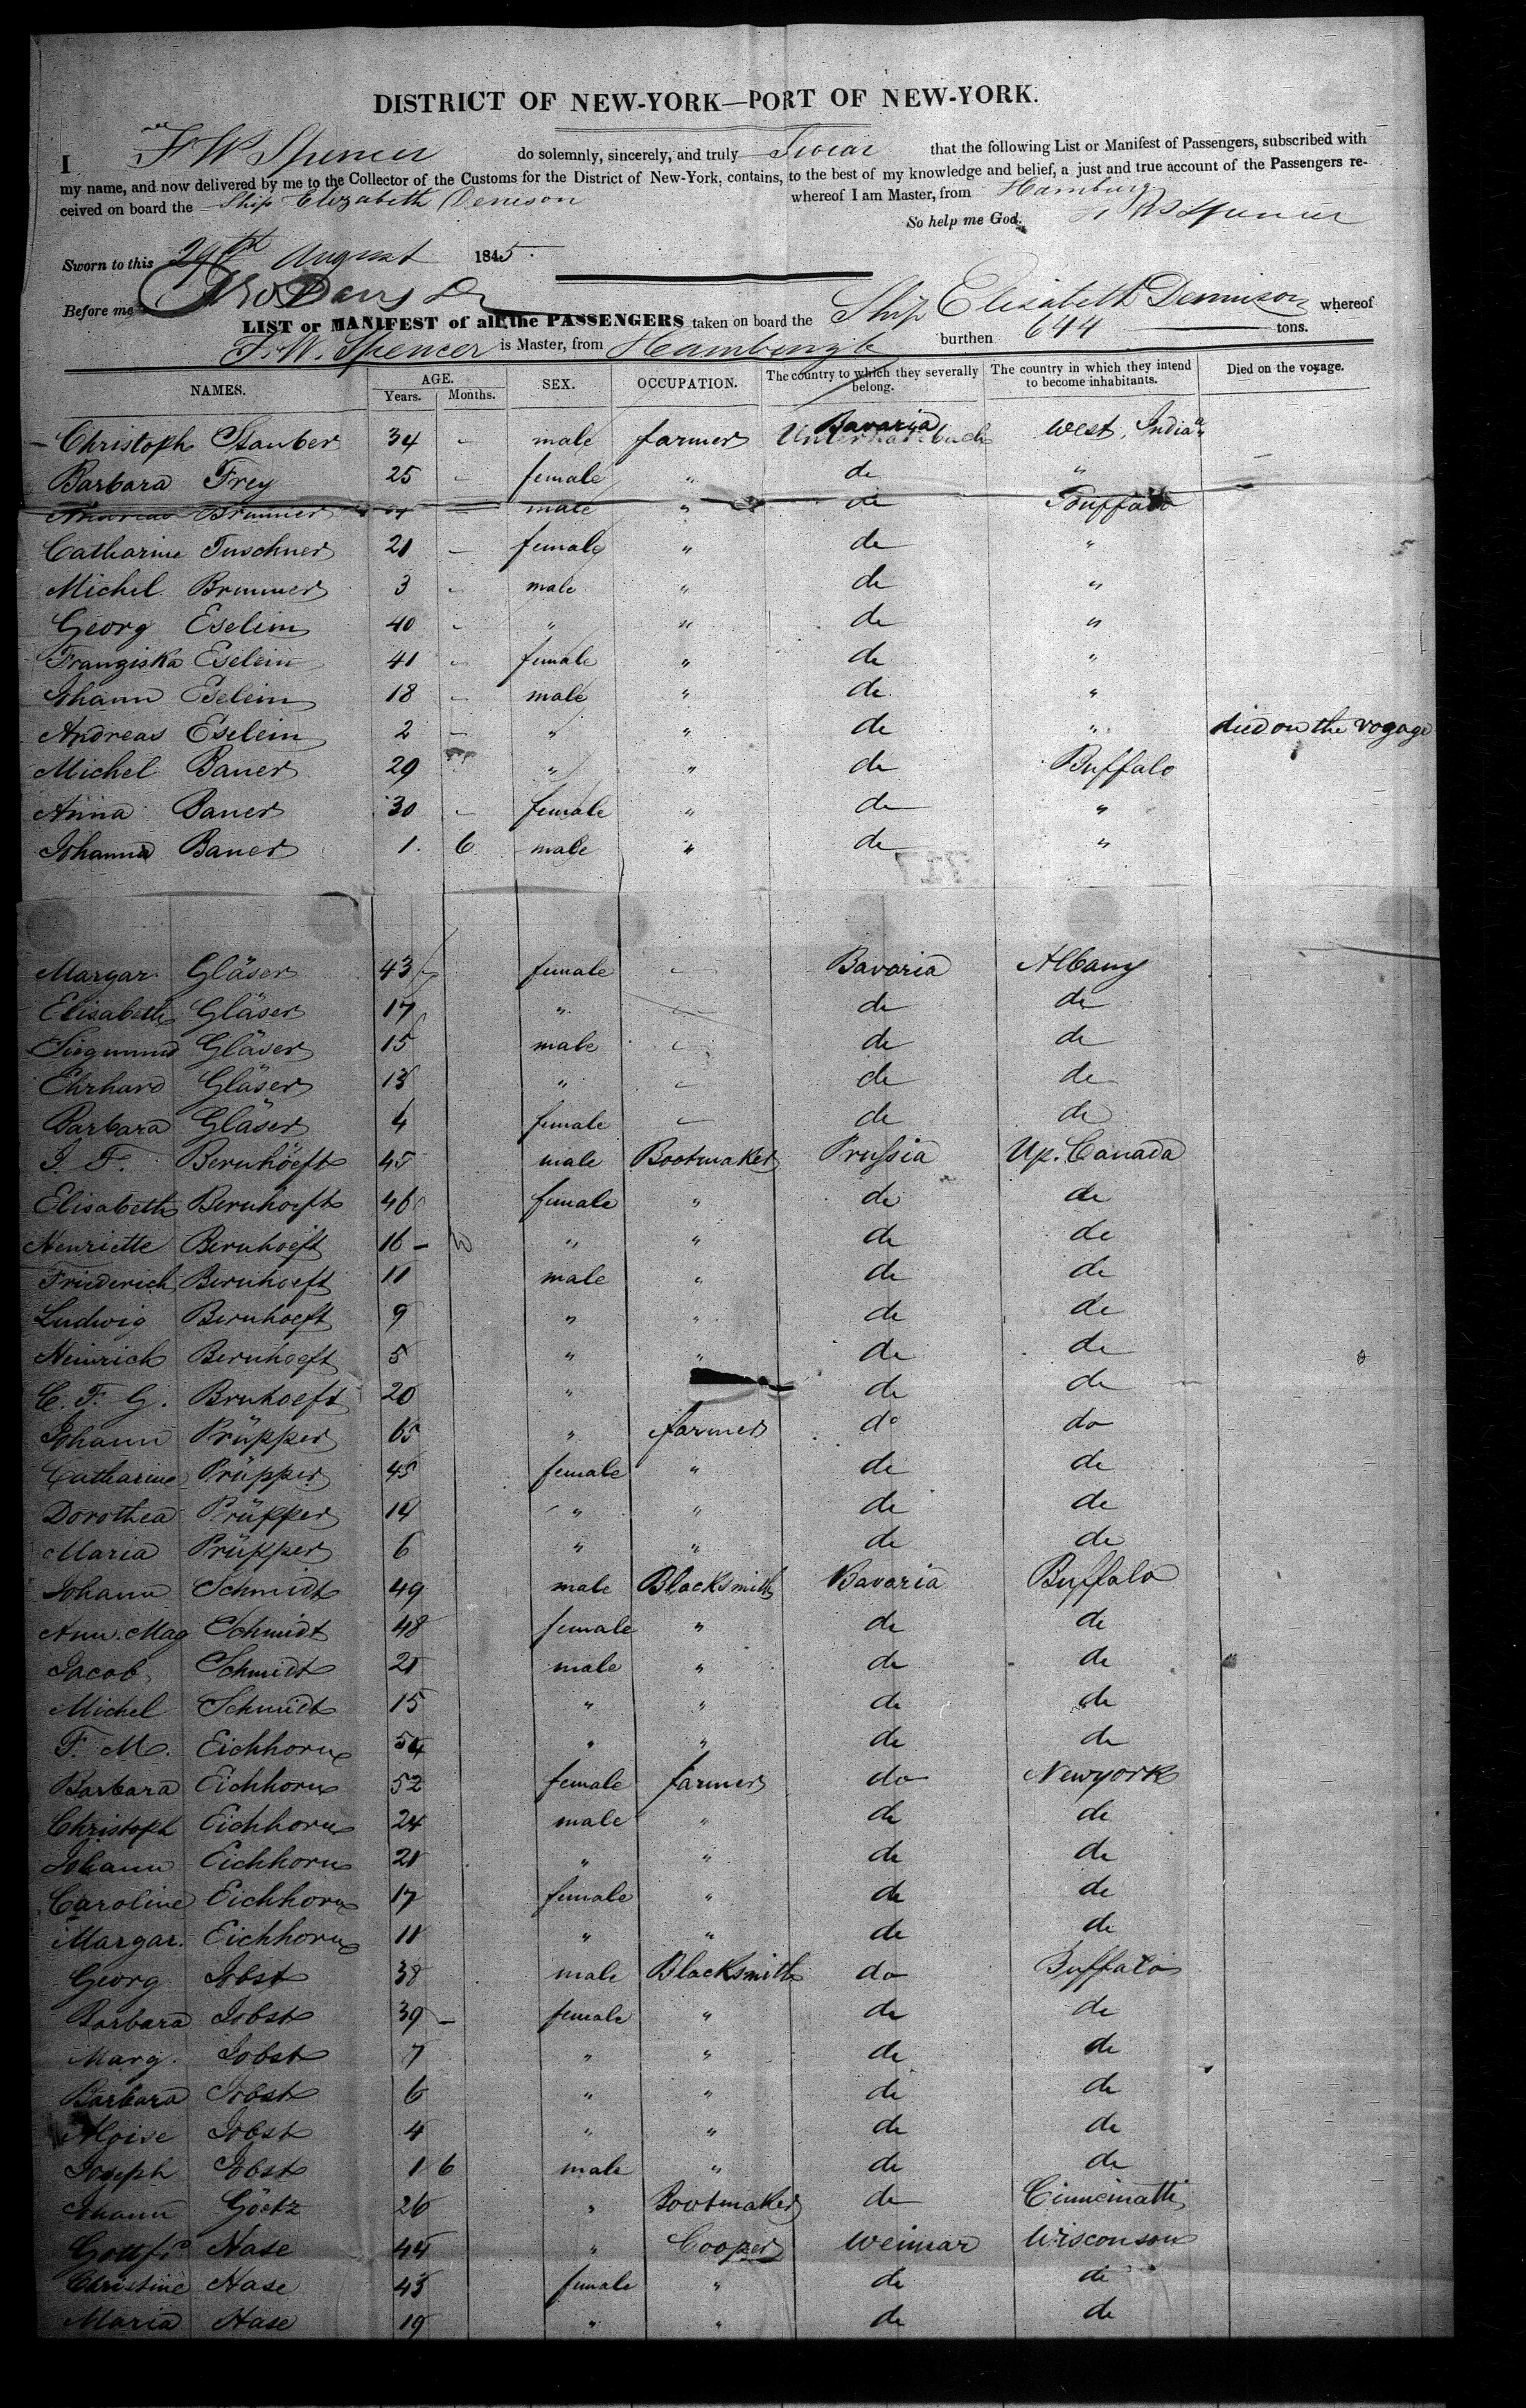 DISTRICT OF NEW-YORK—PORT OF NEW-YORK.
I F W Spencer do solemnly, sincerely, and truly Swear that the following List or Manifest of Passengers, subscribed with
my name, and now delivered by me to the Collector of the Customs for the District of New-York, contains, to the best of my knowledge and belief, a just and true account of the Passengers re-
ceived on board the Ship Elizabeth Denison whereof I am Master, from Hamburg
So help me God. F W Spencer
Sworn to this 29th August 1845.
Before me
LIST or MANIFEST of all the PASSENGERS taken on board the Ship Elisabeth Dennison whereof
F. W. Spencer is Master, from Hamburgh burthen 644 tons.
NAMES. AGE. Years. Months. SEX. OCCUPATION. The country to which they severally belong. The country in which they intend to become inhabitants. Died on the voyage.
Christoph Stauber 34 - male farmer Bavaria West India
Barbara Frey 25 - female " de "
Andreas Brunner male " de Buffalo
Catharine Tuschner 21 - female " de "
Michel Brunner 3 - male " de "
Georg Eselein 40 - " " de "
Franziska Eselein 41 - female " de "
Johann Eselein 18 - male " de "
Andreas Eselein 2 - " " de " died on the voyage
Michel Bauer 29 " " de Buffalo
Anna Bauer 30 - female " de "
Johann Bauer 1. 6 male " de "
Margar. Gläser 43 female - Bavaria Albany
Elisabeth Gläser 17 " - de de
Siegmund Gläser 15 male - de de
Ehrhard Gläser 13 " - de de
Barbara Gläser 4 female - de de
J. F. Bernhöeft 45 male Bootmaker Prussia Up. Canada
Elisabeth Bernhoeft 46 female " de de
Henriette Bernhoeft 16 - " " de de
Friederich Bernhoeft 11 male " de de
Ludwig Bernhoeft 9 " " de de
Heinrich Bernhoeft 5 " " de de
C. F. G. Bruhoeft 20 " de de
Johann Prüpper 65 " farmer do do
Catharine Prüpper 45 female " de de
Dorothea Prüpper 14 " " de de
Maria Prüpper 6 " " de de
Johann Schmidt 49 male Blacksmith Bavaria Buffalo
Ann. Mag Schmidt 48 female " de de
Jacob Schmidt 21 male " de de
Michel Schmidt 15 " " de de
F. M. Eichhorn 54 " " de de
Barbara Eichhorn 52 female farmer do Newyork
Christoph Eichhorn 24 male " de de
Johann Eichhorn 21 " " de de
Caroline Eichhorn 17 female " de de
Margar. Eichhorn 11 " " de de
Georg Jobst 38 male Blacksmith do Buffalo
Barbara Jobst 39 - female " de de
Marg. Jobst 7 " " de de
Barbara Jobst 6 " " de de
Aloise Jobst 4 " " de de
Joseph Jobst 1 6 male " de de
Johann Göetz 26 " Bootmaker de Cinncinatti
Gottfr Hase 44 " Cooper Weimar Wisconson
Christine Hase 43 female " de de
Maria Hase 19 " " de de